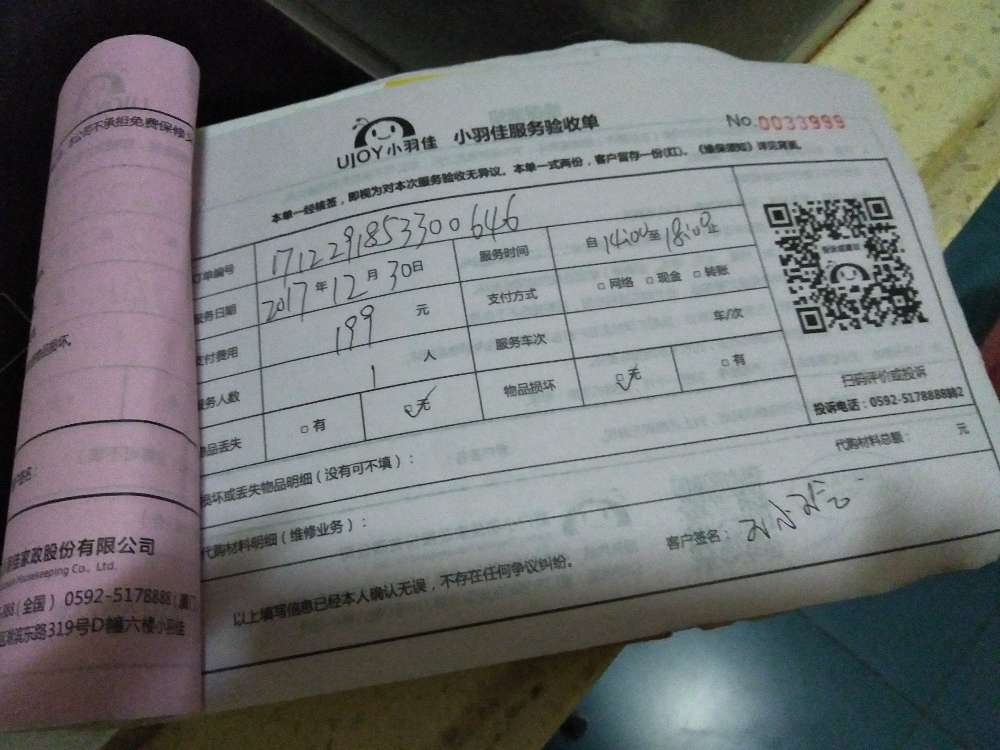 公司不承担免费保修义
佳家政股份有限公司
Housekeeping Co., Ltd.
(全国) 0592-5178888(厦门
湖滨东路319号D幢六楼小羽佳
UJOY小羽佳 小羽佳服务验收单 No.0033999
本单一经核签，即视为对本次服务验收无异议。本单一式两份，客户留存一份(红)。《维保须知》详见背面。
订单编号 1712291853300646 服务时间 自14:00至18:00止
服务日期 2017年12月30日 支付方式 □网络 □现金 □转账
支付费用 199 元 服务车次 车/次
服务人数 1 人 物品损坏 □无 □有
物品丢失 □有 □无
扫码评价或投诉
投诉电话：0592-5178888
损坏或丢失物品明细（没有可不填）：
代购材料明细（维修业务）： 代购材料总额： 元
客户签名：
以上填写信息已经本人确认无误，不存在任何争议纠纷。